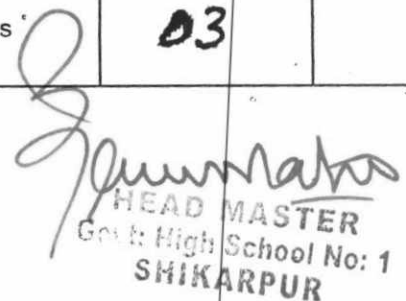 s
03
HEAD MASTER
Govt: High School No: 1
SHIKARPUR